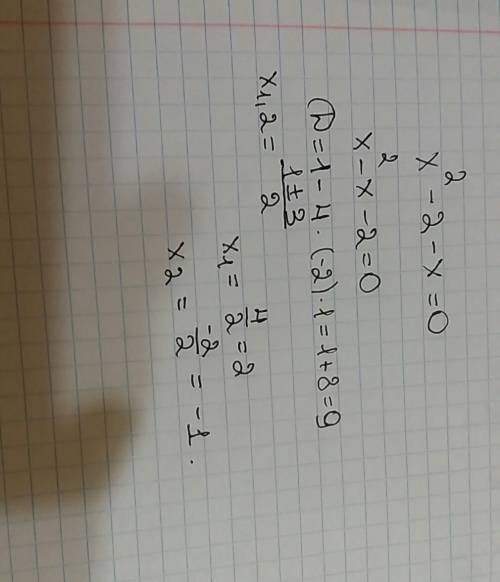 x² - 2 - x = 0
x² - x - 2 = 0
D = 1 - 4 · (-2) · 1 = 1 + 8 = 9
x1,2 = (1 ± 3)/2
x1 = 4/2 = 2
x2 = -2/2 = -1.